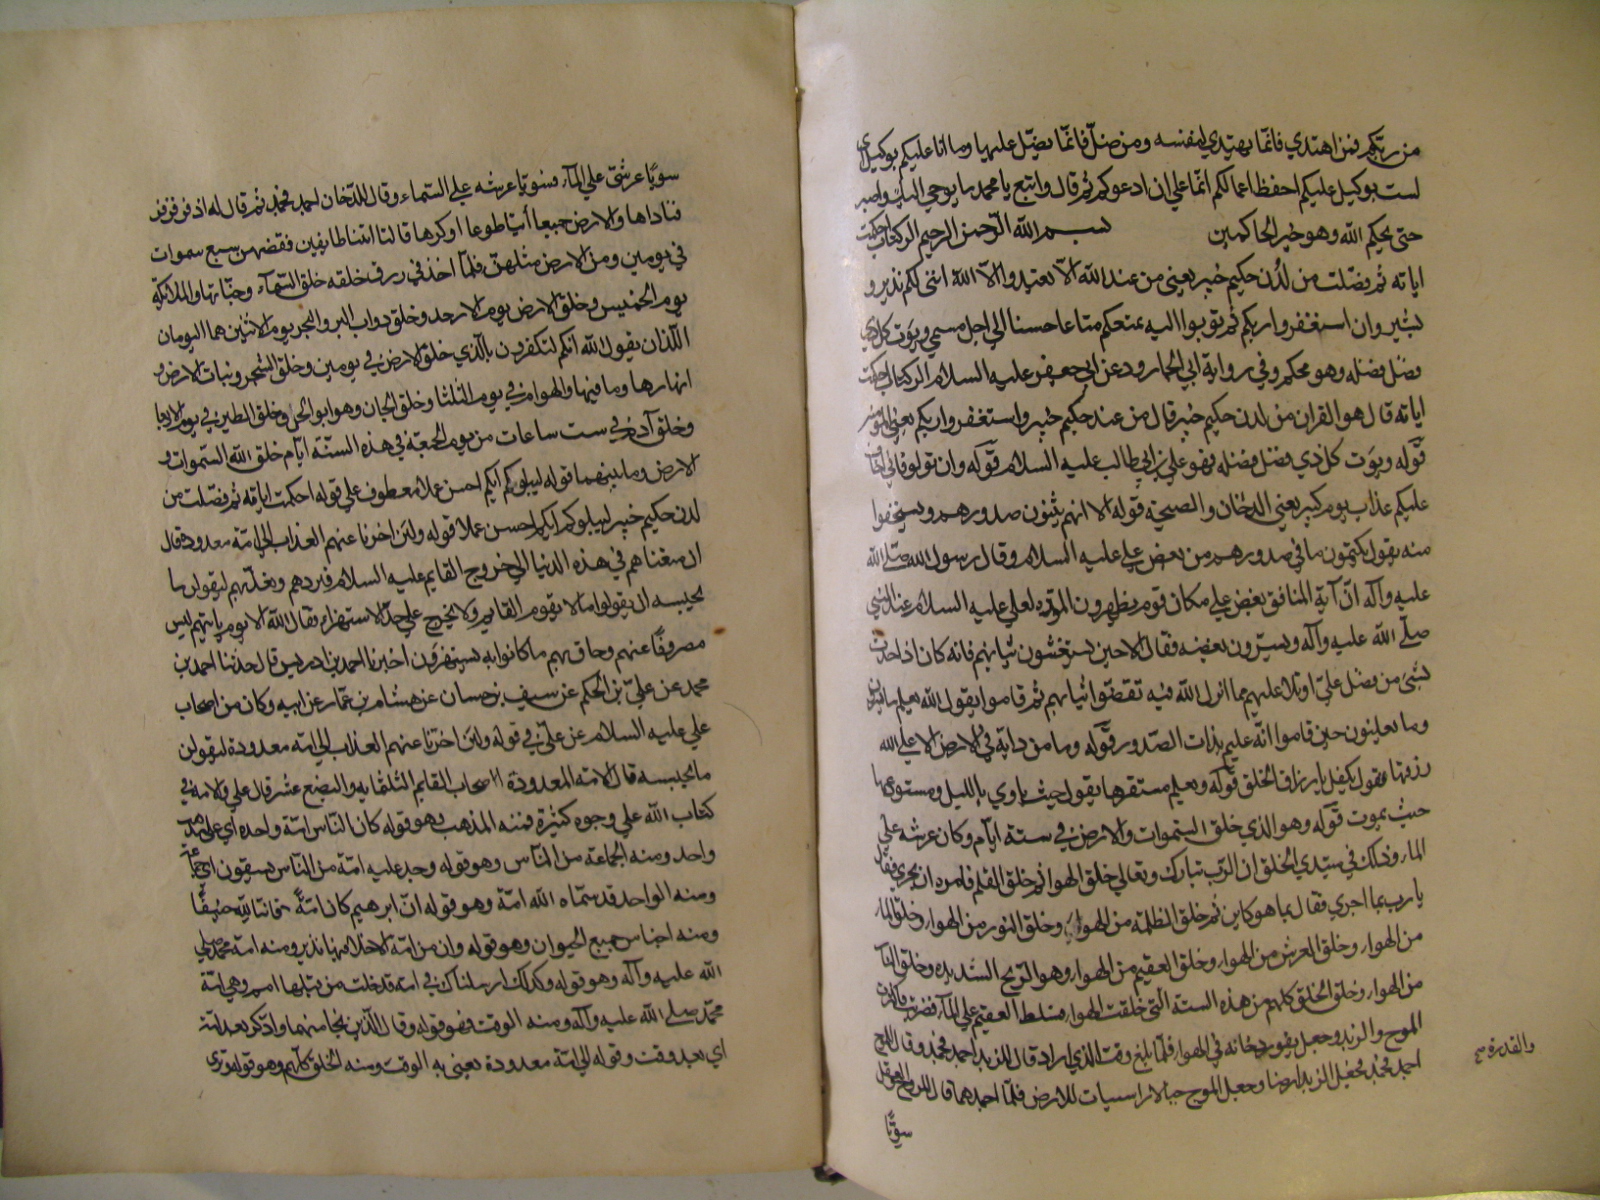 من ربّكم فمن اهتدي فانّما يهتدي لنفسه ومن ضلّ فانّما يضلّ عليها وما انا عليكم بوكيل اي
لست بوكيل عليكم احفظ اعمالكم انّما علي ان ادعوكم ثم قال واتبع يا محمد ما يوحي اليك واصبر
حتى يحكم الله وهو خير الحاكمين بسم الله الرّحمن الرحيم الر كتاب احكمت
اياته ثم فصّلت من لدُن حكيم خبير يعني من عند الله الاّ تعبدوا الاّ الله انني لكم نذير و
بشير وان استغفروا ربكم ثم توبوا اليه يمتعكم متاعا حسنا الي اجل مسمي ويؤت كل ذي
فضل فضله وهو محكم وفي رواية ابي الجارود عن ابي جعفر عليه السلام الر كتاب احكمت
اياته قال هو القران من لدن حكيم خبير قال من عند حكيم خبير واستغفروا ربكم يعني المؤمنين
قوله ويؤت كل ذي فضل فضله فهو علي بن ابي طالب عليه السلام قوله وان تولوا فاني اخاف
عليكم عذاب يوم كبير يعني الدخان والصيحة قوله الا انهم يثنون صدورهم ويستخفوا
منه يقول يكتمون ما في صدورهم من بغض علي عليه السلام وقال رسول الله صلّي الله
عليه وآله انّ آية المنافق بغض علي فكان قوم يظهرون المودّه لعلي عليه السلام عند النبي
صلّي الله عليه وآله ويسرّون بغضه فقال الا حين يستغشون ثيابهم فانه كان اذا حدث
بشيئ من فضل عليّ او تلا عليهم ما انزل الله فيه نفضوا ثيابهم ثم قاموا يقول الله يعلم ما يسرون
وما يعلنون حين قاموا انّه عليم بذات الصّدور قوله وما من دابة في الارض الا علي الله
رزقها يقول يكفل بارزاق الخلق قوله ويعلم مستقرها يقول حيث ياوي بالليل ومستودعها
حيث يموت قوله وهو الذي خلق السّموات والارض في ستة ايّام وكان عرشه علي
الماء وذلك في مبتدي الخلق ان الرّب تبارك وتعالي خلق الهوا ثم خلق القلم فامره ان يجري فقال
يا رب بما اجري فقال بما هو كاين ثم خلق الظلمة من الهواء وخلق النور من الهواء وخلق الماء
من الهواء وخلق العرش من الهواء وخلق العقيم من الهواء وهو الرّيح الشديده وخلق النار
من الهواء وخلق الخلق كلهم من هذه الستة التي خلقت الهواء فسلط العقيم علي الماء فضربته فاكثرت
الموج والزبد وجعل يفور دخانه في الهواء فلمّا بلغ وقت الذي اراد قال للزبد اجمد فجمد وقال للموج
اجمد فجمد فجعل الزبد ارضا وجعل الموج جبالا راسيات للارض فلمّا اجمدهما قال للروح والقدرة
والقدرة صح
سويّا
سويّا عرشي علي الماء فسويا عرشه علي السّماء وقال للدّخان اجمد فجمد ثم قال له ازفر فزفر
فناداها والارض جميعا أتيا طوعا او كرها قالتا اتينا طايعين فقضهن سبع سموات
في يومين ومن الارض مثلهنّ فلمّا اخذ في رزق خلقه خلق السّماء وجنّاتها والملائكة
يوم الخميس وخلق الارض يوم الاحد وخلق دواب البر والبحر يوم الاثنين هما اليومان
اللّذان يقول الله انّكم لتكفرون بالّذي خلق الارض في يومين وخلق الشجر ونبات الارض و
انهارها وما فيها والهوام في يوم الثلثا وخلق الجان وهو ابو الجن وخلق الطير في يوم الاربعا
وخلق آدم في ست ساعات من يوم الجمعة في هذه الستّة ايّام خلق الله السّموات و
الارض وما بينهما قوله ليبلوكم ايّكم احسن عملا معطوف علي قوله احكمت اياته ثم فصّلت من
لدن حكيم خبير ليبلوكم ايّكم احسن عملا قوله ولئن اخرنا عنهم العذاب الي امّة معدودة قال
ان متعناهم في هذه الدنيا الي خروج القايم عليه السلام فنردهم ونعذّبهم ليقولن ما
يحبسه ان يقولوا اما لا يقوم القايم ولا يخرج علي حدّ الاستهزاء فقال الله الا يوم ياتيهم ليس
مصروفًا عنهم وحاق بهم ما كانوا به يستهزؤن اخبرنا احمد بن ادريس قال حدثنا احمد بن
محمد عن عليّ بن الحكم عن سيف بن حسان عن هشام بن عمّار عن ابيه وكان من اصحاب
علي عليه السلام عن عليّ في قوله ولئن اخرنا عنهم العذاب الي امة معدودة ليقولن
ما يحبسه قال الامة المعدودة اصحاب القايم الثلثمايه والبضع عشر قال علي والامة في
كتاب الله علي وجوه كثيرة فمنه المذهب وهو قوله كان النّاس امّة واحده اي علي مذهب
واحد ومنه الجماعة من النّاس وهو قوله وجد عليه امّة من النّاس يسقون اي جماعة
ومنه الواحد قد سمّاه الله امّة وهو قوله انّ ابرهيم كان امّةً قانتا لله حنيفًا
ومنه اجناس جميع الحيوان وهو قوله وان من امّة الا خلا فيها نذير ومنه امة محمد صلي
الله عليه وآله وهو قوله وكذلك ارسلناك في امة قد خلت من قبلها امم وهي امّة
محمّد صلي الله عليه وآله ومنه الوقت وهو قوله وقال الّذي نجا منهما وادّكر بعد امّة
اي بعد وقت وقوله الي امّة معدودة يعني به الوقت ومنه الخلق كلّهم وهو قوله وتري